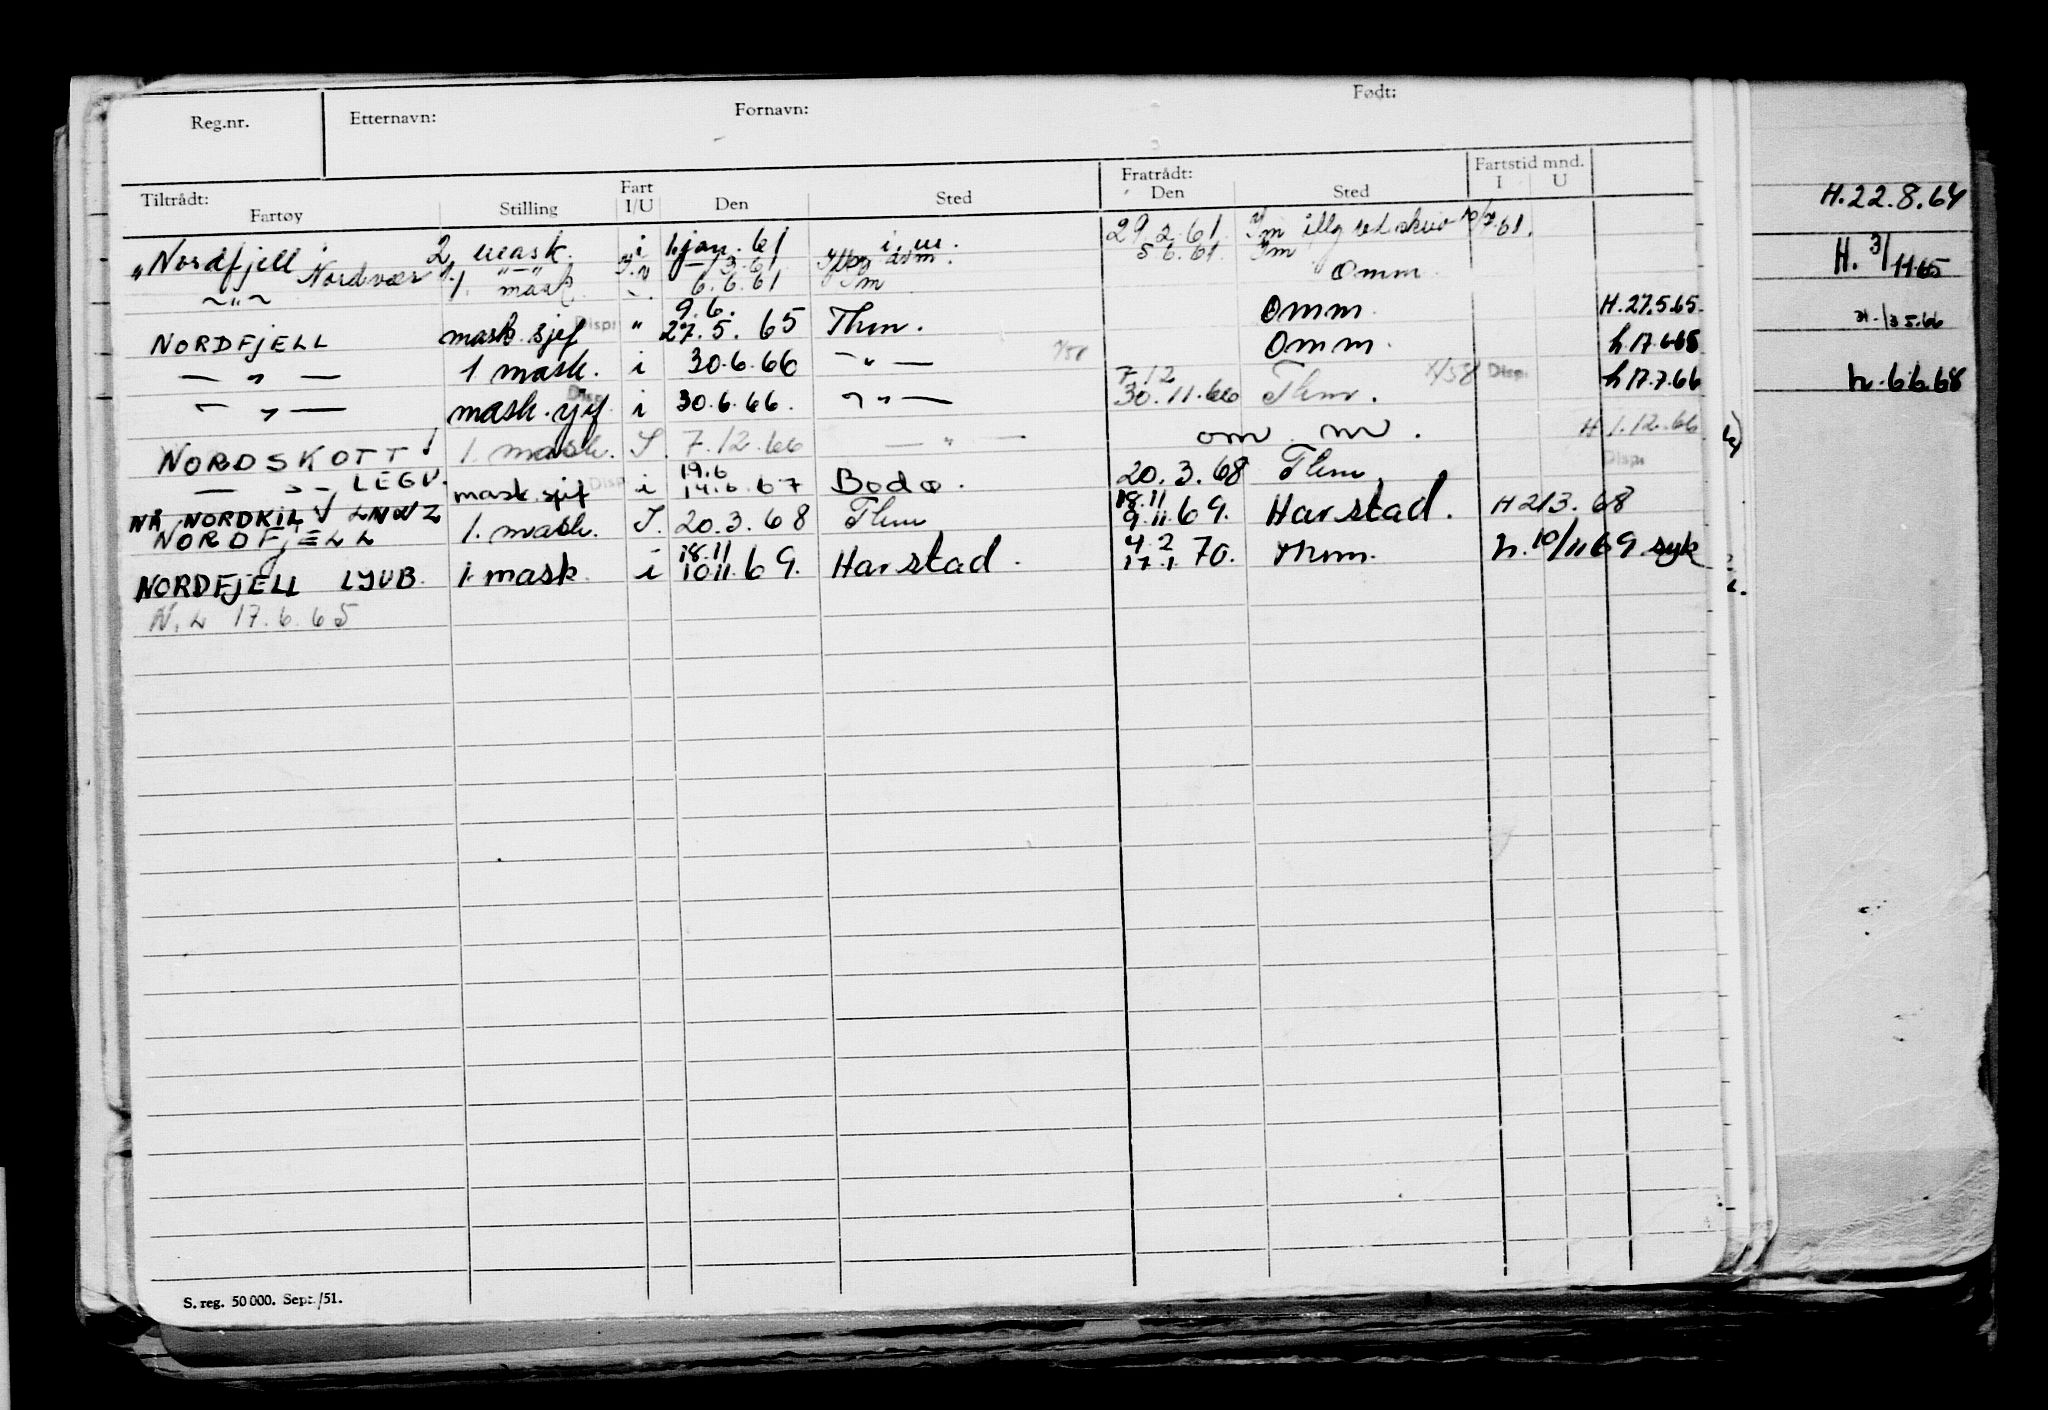 Reg.nr. Etternavn: Fornavn: Født:
Tiltrådt: Fartøy Stilling Fart I/U Den Sted Fratrådt: Den Sted Fartstid mnd. I U
"Nordfjell 2 mask. i 1. jan. 61 i. m. 29.2.61.
Nordvær 3.61 5.6.61
1. mask 6.6.61 omm
NORDFJELL mask.sjef Disp. " 9.6. 27.5.65 Thm. Omm. H.27.5.65.
— " — 1 mask. i 30.6.66 — " — Omm. h 17.6.65
— " — mask.sjef Disp. i 30.6.66. — " — 7.12 30.11.66 Thm. Disp. h 17.7.66
NORDSKOTT 1. mask. I. 7.12.66 — " — om m. H 1.12.66
— " — LEGV. mask.sjef Disp. i 19.6 14.6.67 Bodø. 20.3.68 Thm Disp.
NÅ NORDKIL LMWZ
NORDFJELL 1. mask. I. 20.3.68 Thm 18.11 9.11.69. Harstad. H 21/3.68
NORDFJELL LJUB. 1. mask i 18.11 10.11.69. Harstad. 4.2 17.1.70. Thm. h.10/11 69 syk
N.L 17.6.65
S. reg. 50 000. Sept./51.
H.22.8.64
H. 3/11.65
h.6.6.68